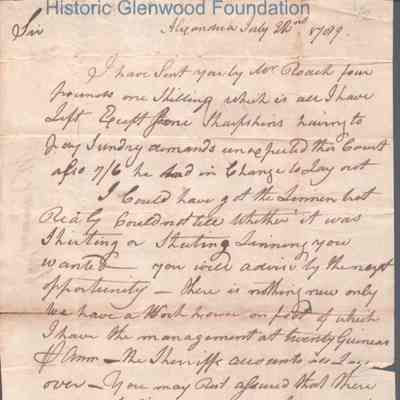 Historic Glenwood Foundation
Alexandria July 22nd 1789.
Sir
I have Sent you by Mr Roach four
pounds one Shilling which is all I have
Left Except Some Sharpshins having to
pay Sundry demands unexpected this Court
also 7/6 he had in Change to Lay out
I Could have got the Linnen but
Could not tell Whether it was
Shirting or Sheeting Linning you
wanted you will advise by the next
opportunity — there is nothing new only
We have a Work house on foot of which
I have the management at twenty Guineas
Ann — the Sherriffs accounts all Lay
over — You may Rest assured that there